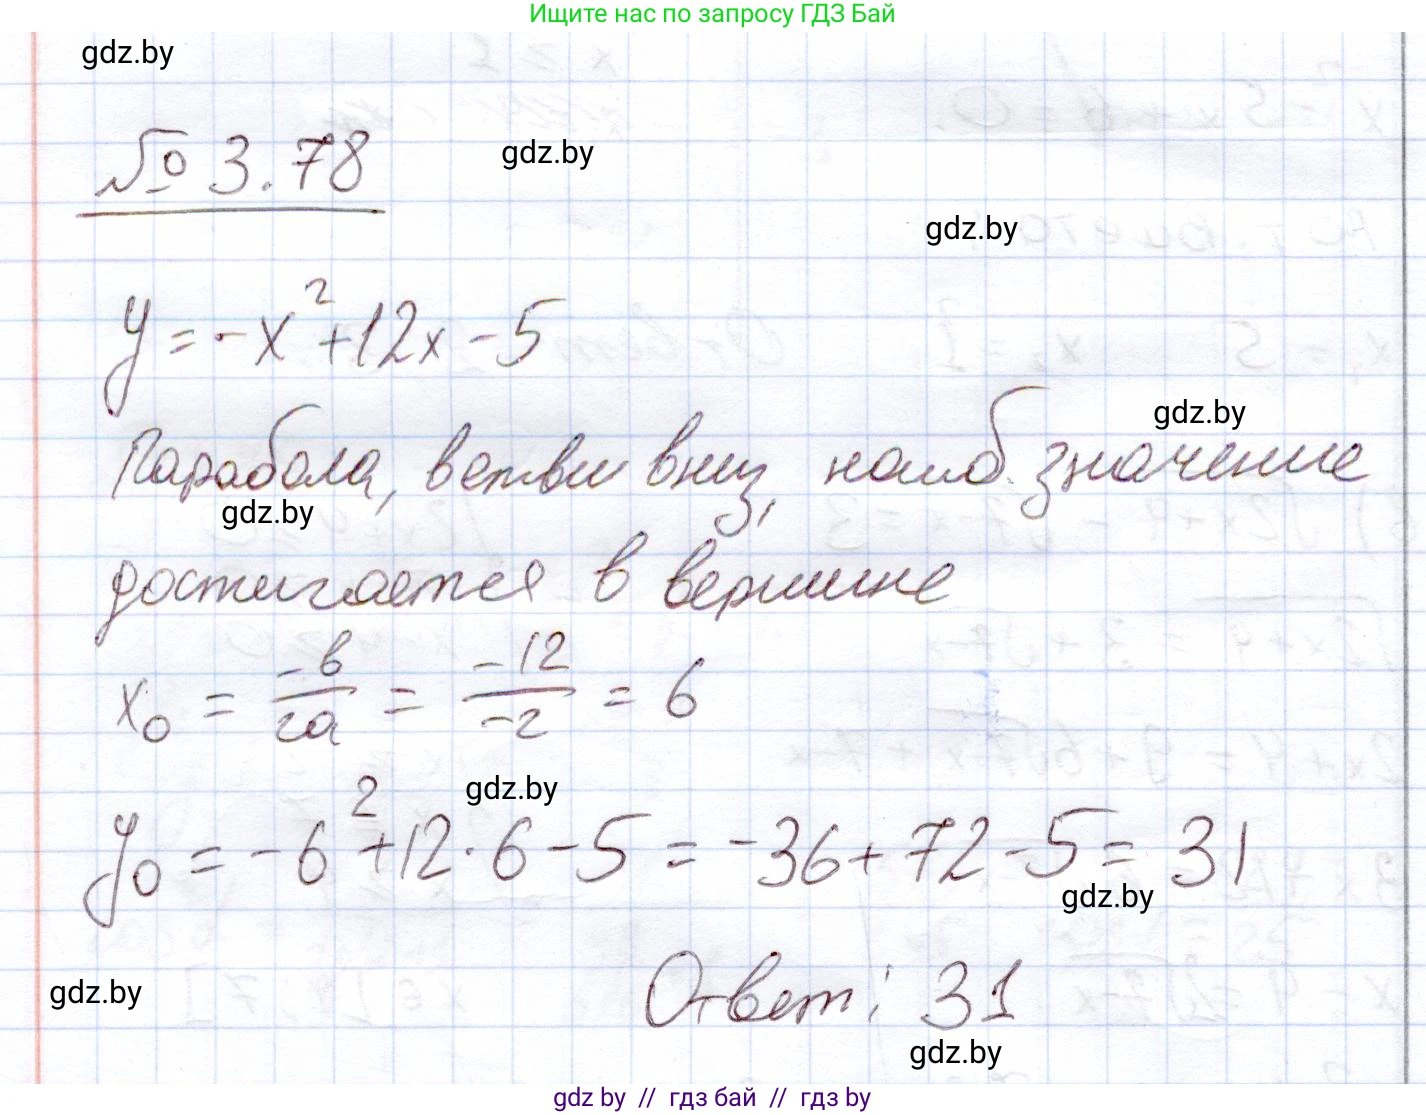 Ищите нас по запросу ГДЗ Бай
gdz.by
№ 3.78
gdz.by
gdz.by
y = -x² + 12x - 5
gdz.by
Парабола, ветви вниз, наиб. значение
gdz.by
достигается в вершине
x₀ = -в/2a = -12/-2 = 6
gdz.by
y₀ = -6² + 12 · 6 - 5 = -36 + 72 - 5 = 31
gdz.by
gdz.by
Ответ: 31
gdz.by
gdz by // гдз бай // гдз by